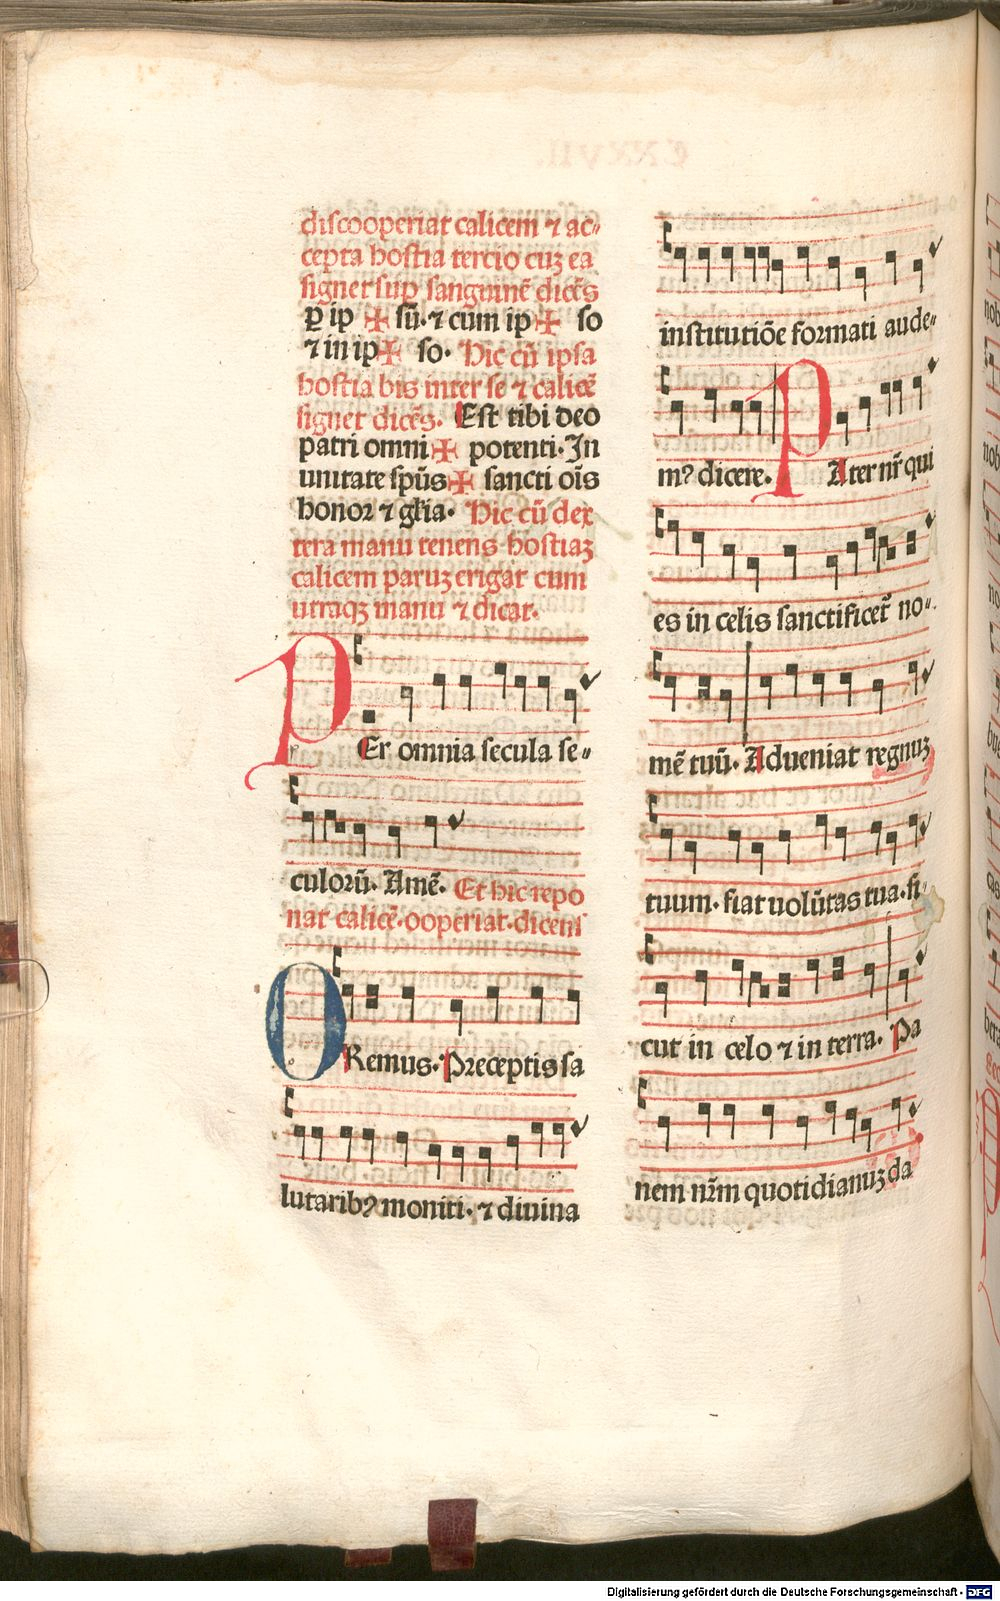 discooperiat calicem ⁊ ac⸗
cepta hostia tercio cuʒ ea
signet sup̱ sanguinē dicēs
ꝑ ip ✠ sū·⁊ cum ip✠ so
⁊ in ip✠ so· Hic cū ipsa
hostia bis inter se ⁊ calicē
signet dicēs. Est tibi deo
patri omni✠ potenti·In
unitate sp̄us✠ sancti oīs
honor ⁊ gl̄ia· Hic cū dex
tera manu tenens hostiaʒ
calicem paruʒ erigat cum
utraqʒ manu ⁊ dicat·
PEr omnia secula se⸗
culorū· Amē· Et hic repo
nat calicē·ooperiat·dicens
ORemus· Preceptis sa
lutarib? moniti· ⁊ diuina
institutiōe formati aude⸗
m? dicere· PAter nr̄ qui
es in celis sanctificet̄ no⸗
mē tuū· Adueniat regnuʒ
tuum· fiat uolūtas tua·si⸗
cut in celo ⁊ in terra· Pa
nem nr̄m quotidianuʒ da
CXXVII.
Digitalisierung gefördert durch die Deutsche Forschungsgemeinschaft - DFG